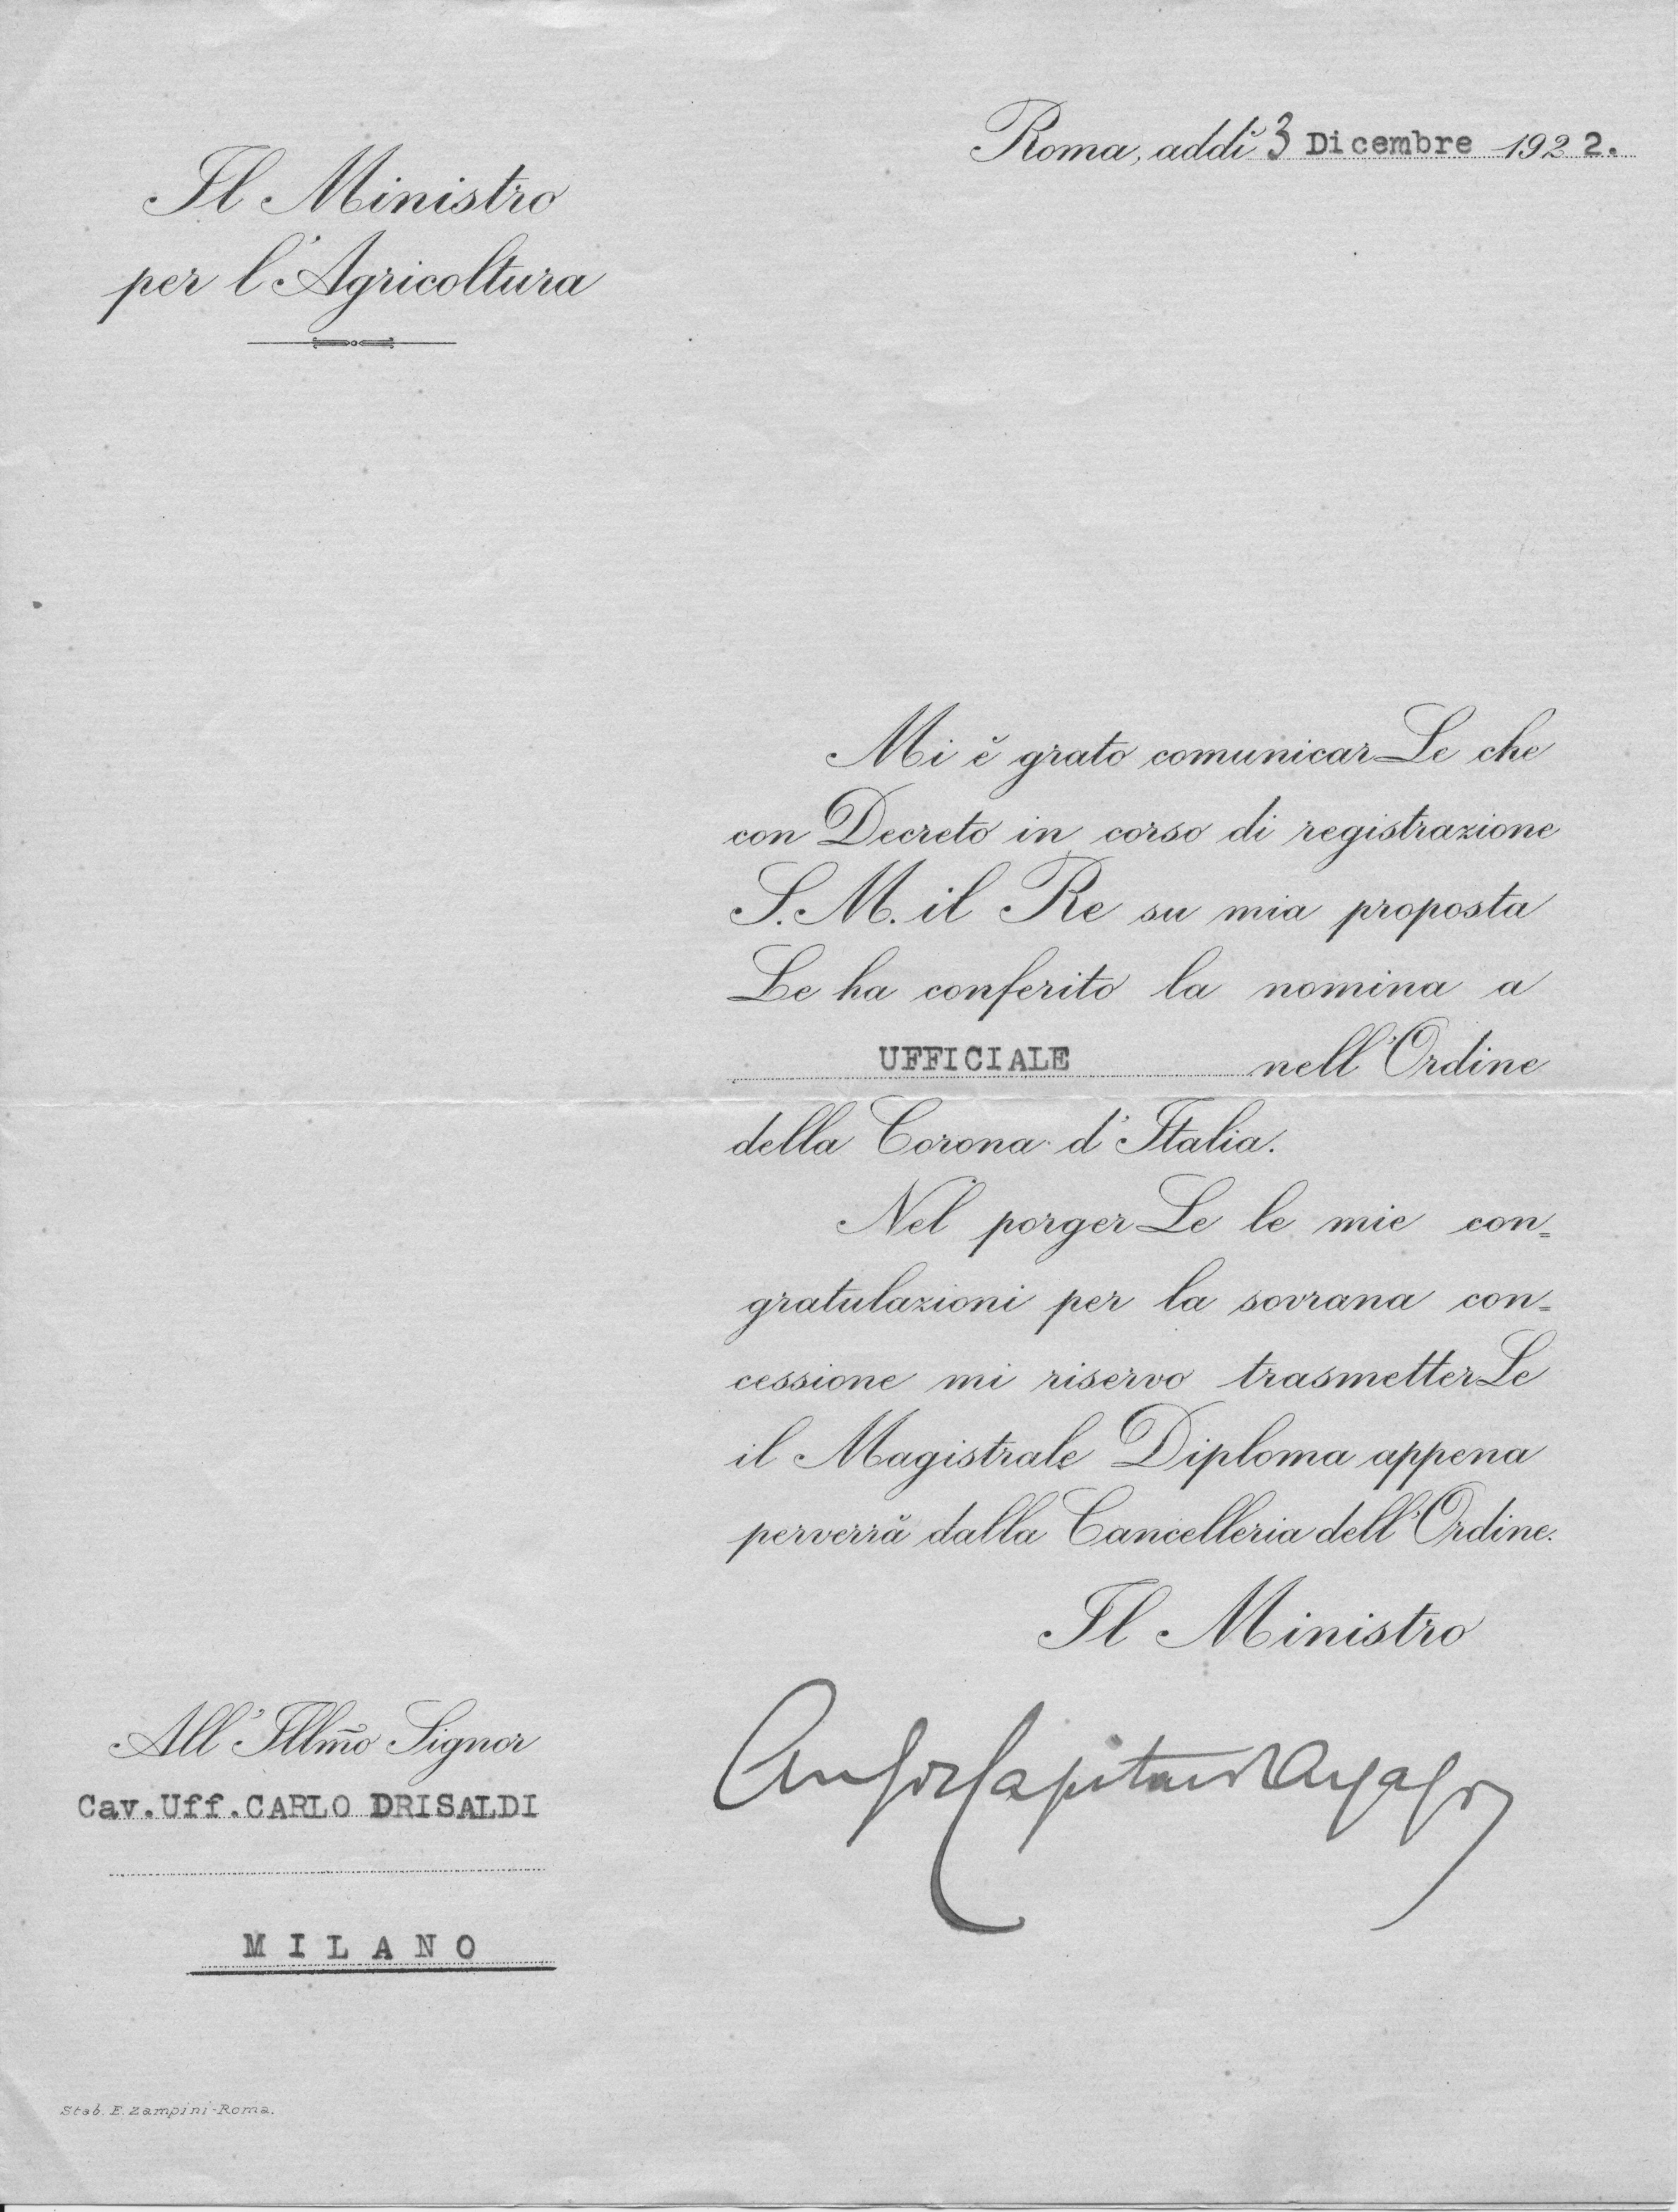 Roma, addì 3 Dicembre 1922.
Il Ministro
per l'Agricoltura
Mi è grato comunicarLe che
con Decreto in corso di registrazione
S. M. il Re su mia proposta
Le ha conferito la nomina a
UFFICIALE nell'Ordine
della Corona d'Italia.
Nel porgerLe le mie con=
gratulazioni per la sovrana con=
cessione mi riservo trasmetterLe
il Magistrale Diploma appena
perverrà dalla Cancelleria dell'Ordine.
Il Ministro
All'Illmo Signor
Cav.Uff.CARLO DRISALDI
MILANO
Stab. E. Zampini-Roma.